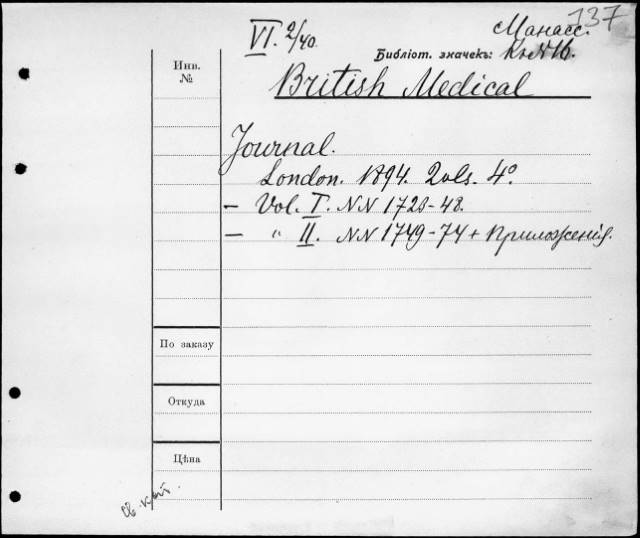 137
VI. 2/40.
Манасс.
Библіот. значекъ: Кн № 16.
Инв.
№
British Medical
Journal.
London. 1894. 2 vols. 4°.
– Vol. I. NN 1723-48.
– " II. NN 1749-74 + приложенія.
По заказу
Откуда
Цѣна